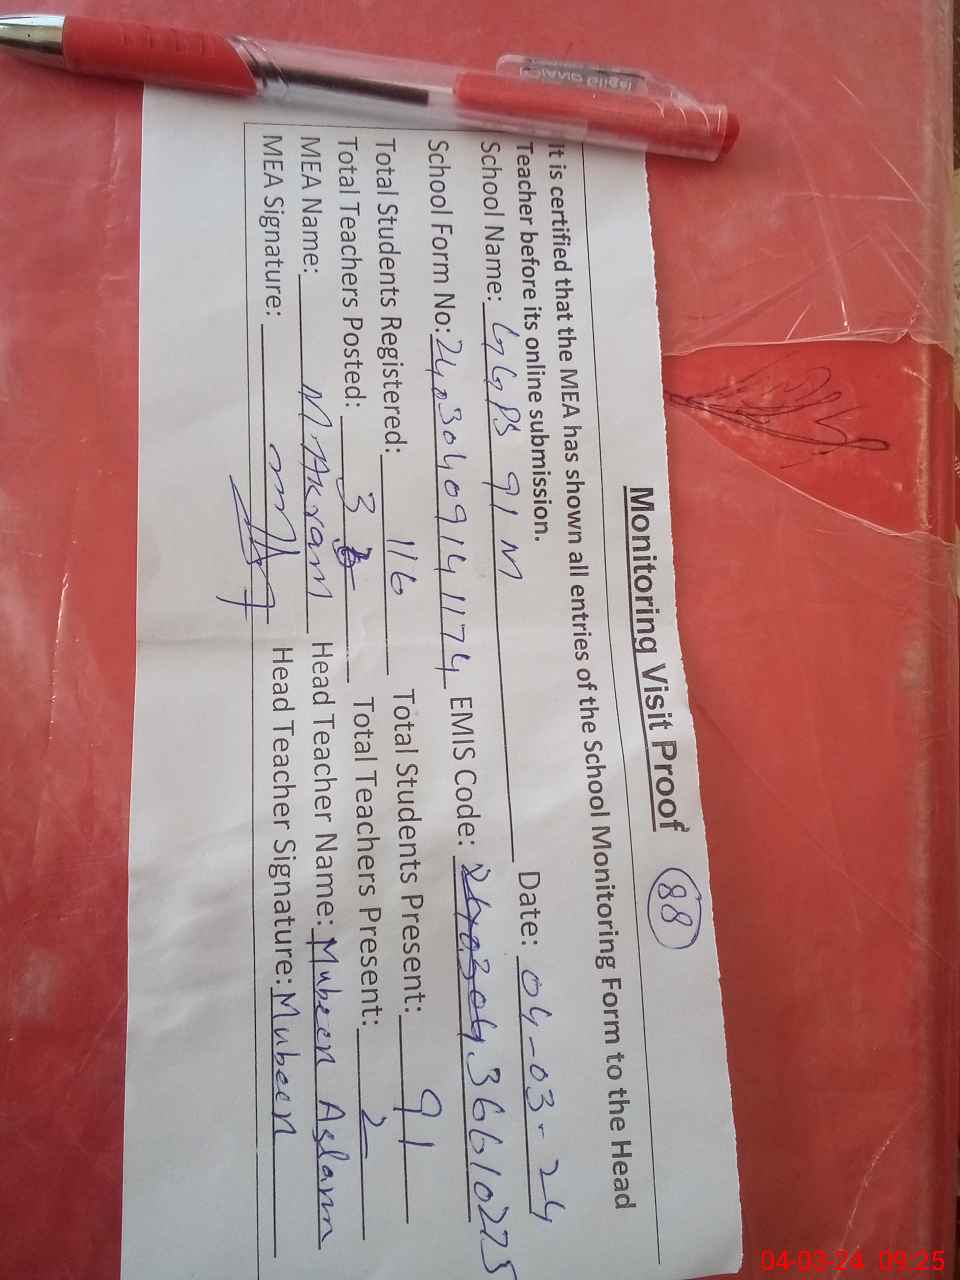 Monitoring Visit Proof 88
It is certified that the MEA has shown all entries of the School Monitoring Form to the Head
Teacher before its online submission.
School Name: GGPS 91 M Date: 04-03-24
School Form No: 24030409141174 EMIS Code: 240304 36610225
Total Students Registered: 116 Total Students Present: 91
Total Teachers Posted: 3 Total Teachers Present: 2
MEA Name: M Akram Head Teacher Name: Mubeen Aslam
MEA Signature: Head Teacher Signature: Mubeen
04-03-24 09:25